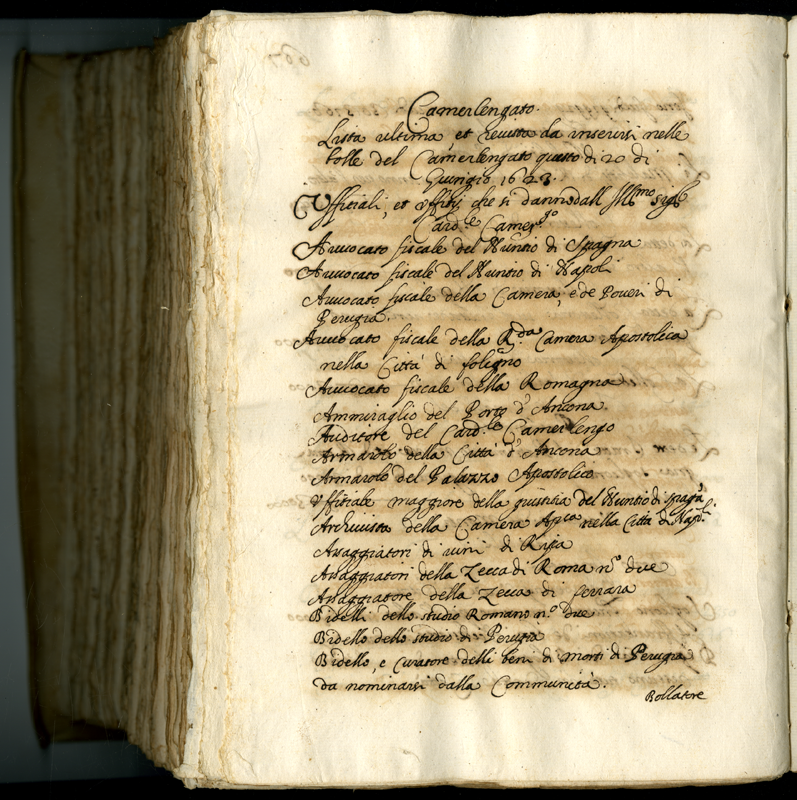 Camerlengato.
Lista ultima et revista da inserirsi nelle
bolle del Camerlengato questo di 20 di
Giungio 1623.
Uffitiali, et uffitij che si danno dall Ill.mo Sig.re
Card.le Camer.go
Avvocato fiscale del Nuntio di Spagna
Avvocato fiscale del Nuntio di Napoli
Avvocato fiscale della Camera, e de Poveri di
Perugia.
Avvocato fiscale della R.da Camera Apostolica
nella Città di foligno
Avvocato fiscale della Romagna
Ammiraglio del Porto d'Ancona.
Auditore del Card.le Camerlengo
Armarolo della Città d'Ancona
Armarolo del Palazzo Apostolico
Uffitiale maggiore della giustitia del Nuntio di Spagna
Archivista della Camera Ap.ca nella Città di Nap.li
Assaggiatori di vini di Ripa
Assaggiatori della Zecca di Roma n.o due
Assaggiatore della Zecca di ferrara
Bidelli dello studio Romano n.o due
Bidello dello studio di Perugia
Bidello, e curatore delli beni di morti di Perugia
da nominarsi dalla Communità.
Bollatore